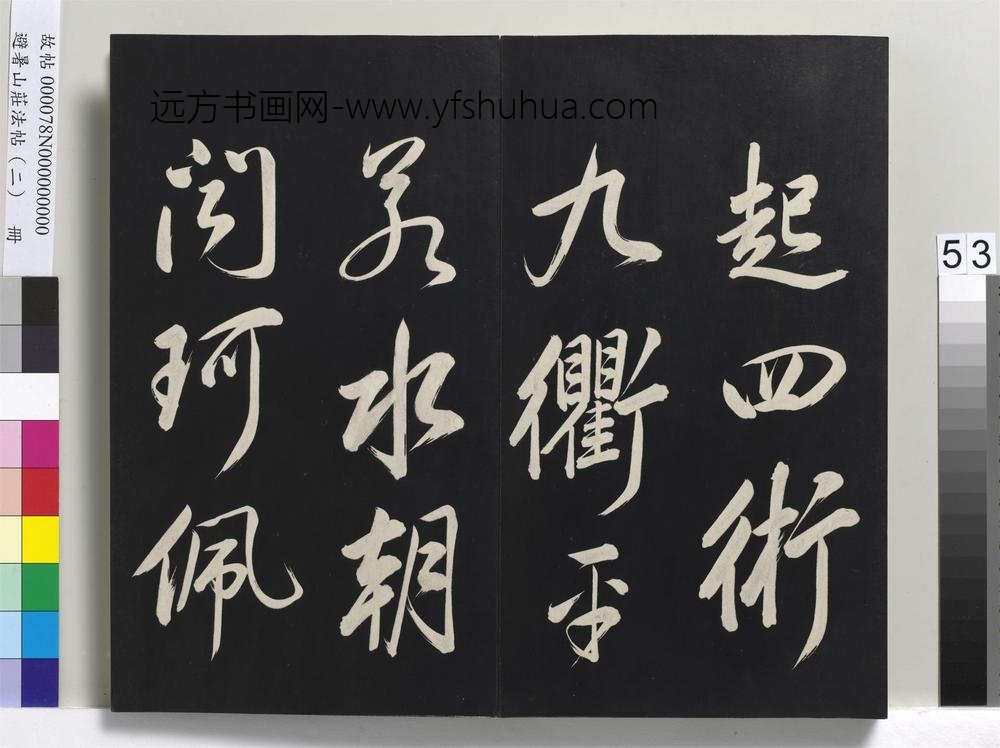 远方书画网-www.yfshuhua.com
起四術
九衢平
若水朝
闻珂佩
故帖 000078N000000000
避暑山莊法帖(二) 冊
53